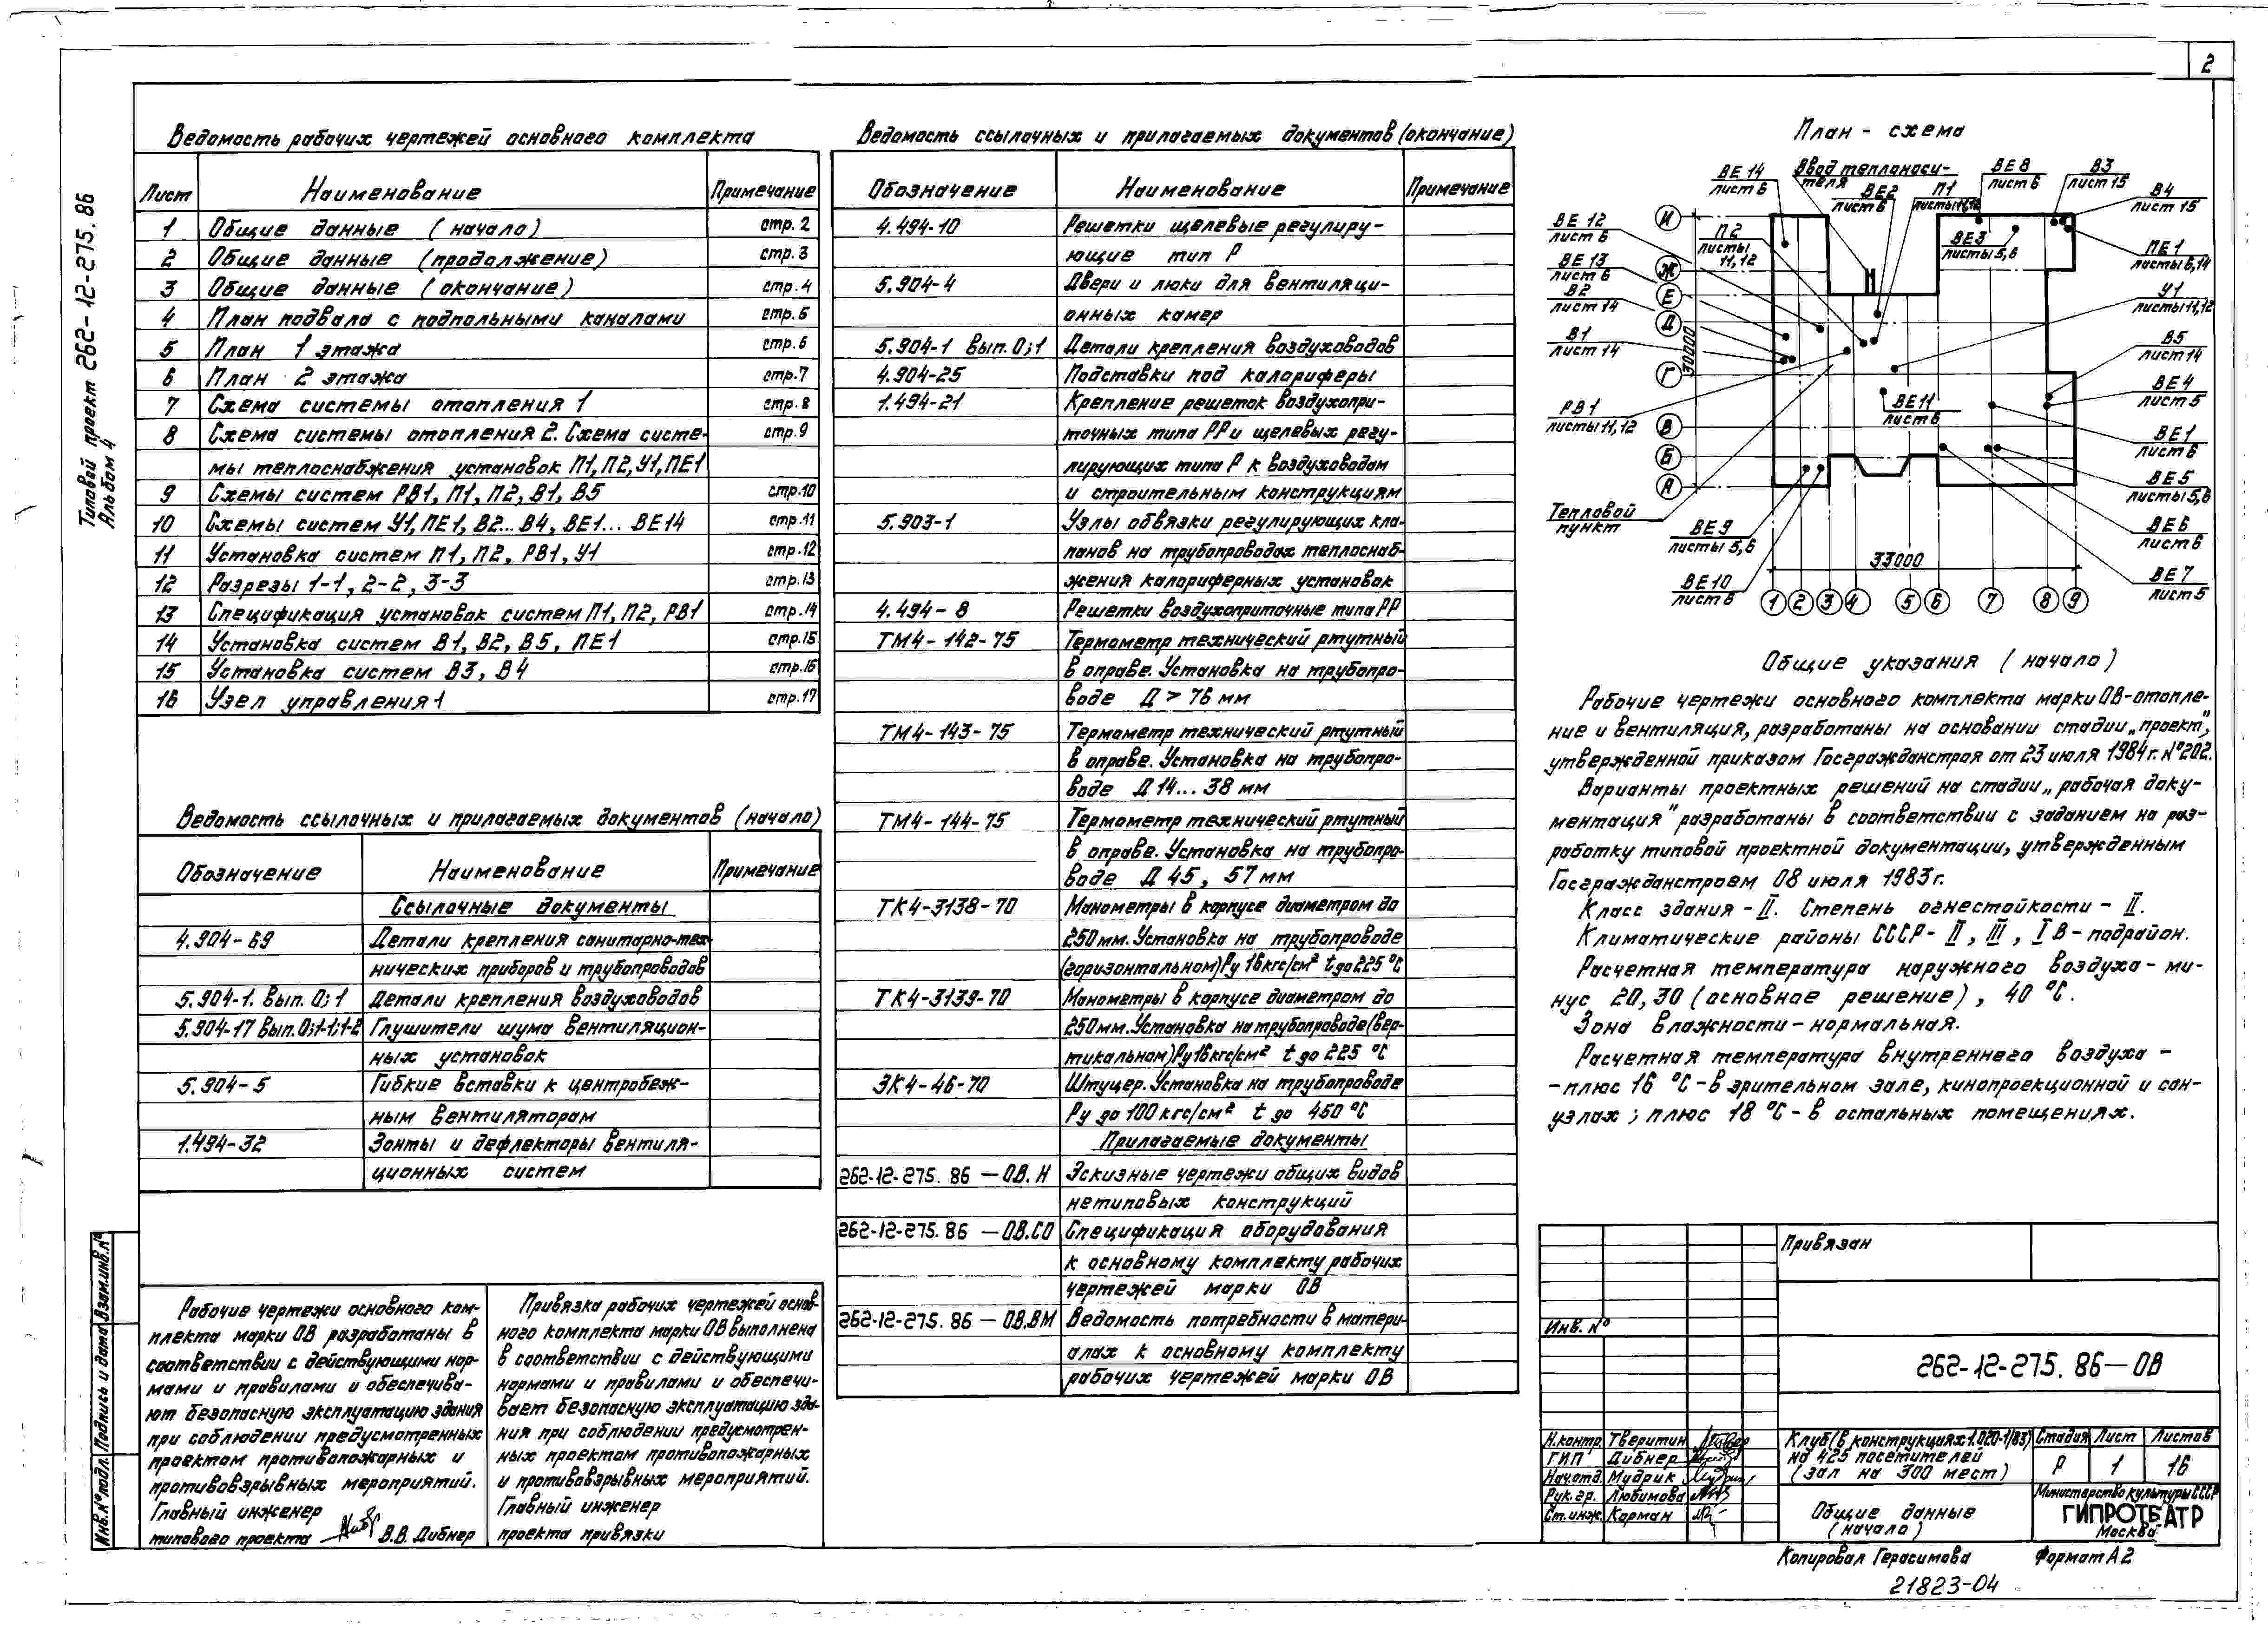 2
Типовой проект 262-12-275.86
Альбом 4
Ведомость рабочих чертежей основного комплекта
Лист Наименование Примечание
1 Общие данные (начало) стр. 2
2 Общие данные (продолжение) стр. 3
3 Общие данные (окончание) стр. 4
4 План подвала с подпольными каналами стр. 5
5 План 1 этажа стр. 6
6 План 2 этажа стр. 7
7 Схема системы отопления 1 стр. 8
8 Схема системы отопления 2. Схема систе- стр. 9
мы теплоснабжения установок П1, П2, У1, ПЕ1
9 Схемы систем РВ1, П1, П2, В1, В5 стр. 10
10 Схемы систем У1, ПЕ1, В2... В4, ВЕ1... ВЕ14 стр. 11
11 Установка систем П1, П2, РВ1, У1 стр. 12
12 Разрезы 1-1, 2-2, 3-3 стр. 13
13 Спецификация установок систем П1, П2, РВ1 стр. 14
14 Установка систем В1, В2, В5, ПЕ1 стр. 15
15 Установка систем В3, В4 стр. 16
16 Узел управления 1 стр. 17
Ведомость ссылочных и прилагаемых документов (начало)
Обозначение Наименование Примечание
Ссылочные документы
4.904-69 Детали крепления санитарно-тех-
нических приборов и трубопроводов
5.904-1. Вып. 0; 1 Детали крепления воздуховодов
5.904-17 Вып. 0; 1-1; 1-2 Глушители шума вентиляцион-
ных установок
5.904-5 Гибкие вставки к центробеж-
ным вентиляторам
1.494-32 Зонты и дефлекторы вентиля-
ционных систем
Рабочие чертежи основного ком-
плекта марки ОВ разработаны в
соответствии с действующими нор-
мами и правилами и обеспечива-
ют безопасную эксплуатацию здания
при соблюдении предусмотренных
проектом противопожарных и
противовзрывных мероприятий.
Главный инженер
типового проекта В.В. Дибнер
Привязка рабочих чертежей основ-
ного комплекта марки ОВ выполнена
в соответствии с действующими
нормами и правилами и обеспечи-
вает безопасную эксплуатацию зда-
ния при соблюдении предусмотрен-
ных проектом противопожарных
и противовзрывных мероприятий.
Главный инженер
проекта привязки
Инв. № подл. Подпись и дата Взам. инв. №
Ведомость ссылочных и прилагаемых документов (окончание)
Обозначение Наименование Примечание
4.494-10 Решетки щелевые регулиру-
ющие тип Р
5.904-4 Двери и люки для вентиляци-
онных камер
5.904-1 Вып. 0; 1 Детали крепления воздуховодов
4.904-25 Подставки под калориферы
1.494-21 Крепление решеток воздухопри-
точных типа РР и щелевых регу-
лирующих типа Р к воздуховодам
и строительным конструкциям
5.903-1 Узлы обвязки регулирующих кла-
панов на трубопроводах теплоснаб-
жения калориферных установок
4.494-8 Решетки воздухоприточные типа РР
ТМ4-142-75 Термометр технический ртутный
в оправе. Установка на трубопро-
воде Д > 76 мм
ТМ4-143-75 Термометр технический ртутный
в оправе. Установка на трубопро-
воде Д 14... 38 мм
ТМ4-144-75 Термометр технический ртутный
в оправе. Установка на трубопро-
воде Д 45, 57 мм
ТК4-3138-70 Манометры в корпусе диаметром до
250 мм. Установка на трубопроводе
(горизонтальном) Ру 16 кгс/см² t до 225 °С
ТК4-3139-70 Манометры в корпусе диаметром до
250 мм. Установка на трубопроводе (вер-
тикальном) Ру 16 кгс/см² t до 225 °С
ЗК4-46-70 Штуцер. Установка на трубопроводе
Ру до 100 кгс/см² t до 450 °С
Прилагаемые документы
262-12-275.86 — ОВ.Н Эскизные чертежи общих видов
нетиповых конструкций
262-12-275.86 — ОВ.СО Спецификация оборудования
к основному комплекту рабочих
чертежей марки ОВ
262-12-275.86 — ОВ.ВМ Ведомость потребности в матери-
алах к основному комплекту
рабочих чертежей марки ОВ
План - схема
ВЕ 14
лист 6
Ввод теплоноси-
теля
ВЕ2
лист 6
П1
листы 11,12
ВЕ 8
лист 6
В3
лист 15
В4
лист 15
ВЕ 12
лист 6
П2
листы
11, 12
ВЕ3
листы 5,6
ПЕ1
листы 6,14
ВЕ 13
лист 6
В2
лист 14
У1
листы 11,12
В1
лист 14
В5
лист 14
ВЕ4
лист 5
РВ1
листы 11, 12
ВЕ11
лист 6
ВЕ1
лист 6
ВЕ5
листы 5,6
Тепловой
пункт
ВЕ9
листы 5, 6
ВЕ6
лист 6
ВЕ10
лист 6
ВЕ7
лист 5
И Ж Е Д Г В Б А
30000
33000
1 2 3 4 5 6 7 8 9
Общие указания (начало)
Рабочие чертежи основного комплекта марки ОВ-отопле-
ние и вентиляция, разработаны на основании стадии „проект",
утвержденной приказом Госгражданстроя от 23 июля 1984 г. №202.
Варианты проектных решений на стадии „рабочая доку-
ментация" разработаны в соответствии с заданием на раз-
работку типовой проектной документации, утвержденным
Госгражданстроем 08 июля 1983 г.
Класс здания - II. Степень огнестойкости - II.
Климатические районы СССР - II, III, I В - подрайон.
Расчетная температура наружного воздуха - ми-
нус 20, 30 (основное решение), 40 °С.
Зона влажности - нормальная.
Расчетная температура внутреннего воздуха -
- плюс 16 °С - в зрительном зале, кинопроекционной и сан-
узлах; плюс 18 °С - в остальных помещениях.
Привязан
Инв. №
262-12-275.86 — ОВ
Н.контр. Тверитин
ГИП Дибнер
Нач.отд. Мудрик
Рук. гр. Любимова
Ст.инж. Корман
Клуб (в конструкциях 1.020-1/83)
на 425 посетителей
(зал на 300 мест)
Стадия Лист Листов
Р 1 16
Общие данные
(начало)
Министерство культуры СССР
ГИПРОТЕАТР
Москва
Копировал Герасимова Формат А2
21823-04